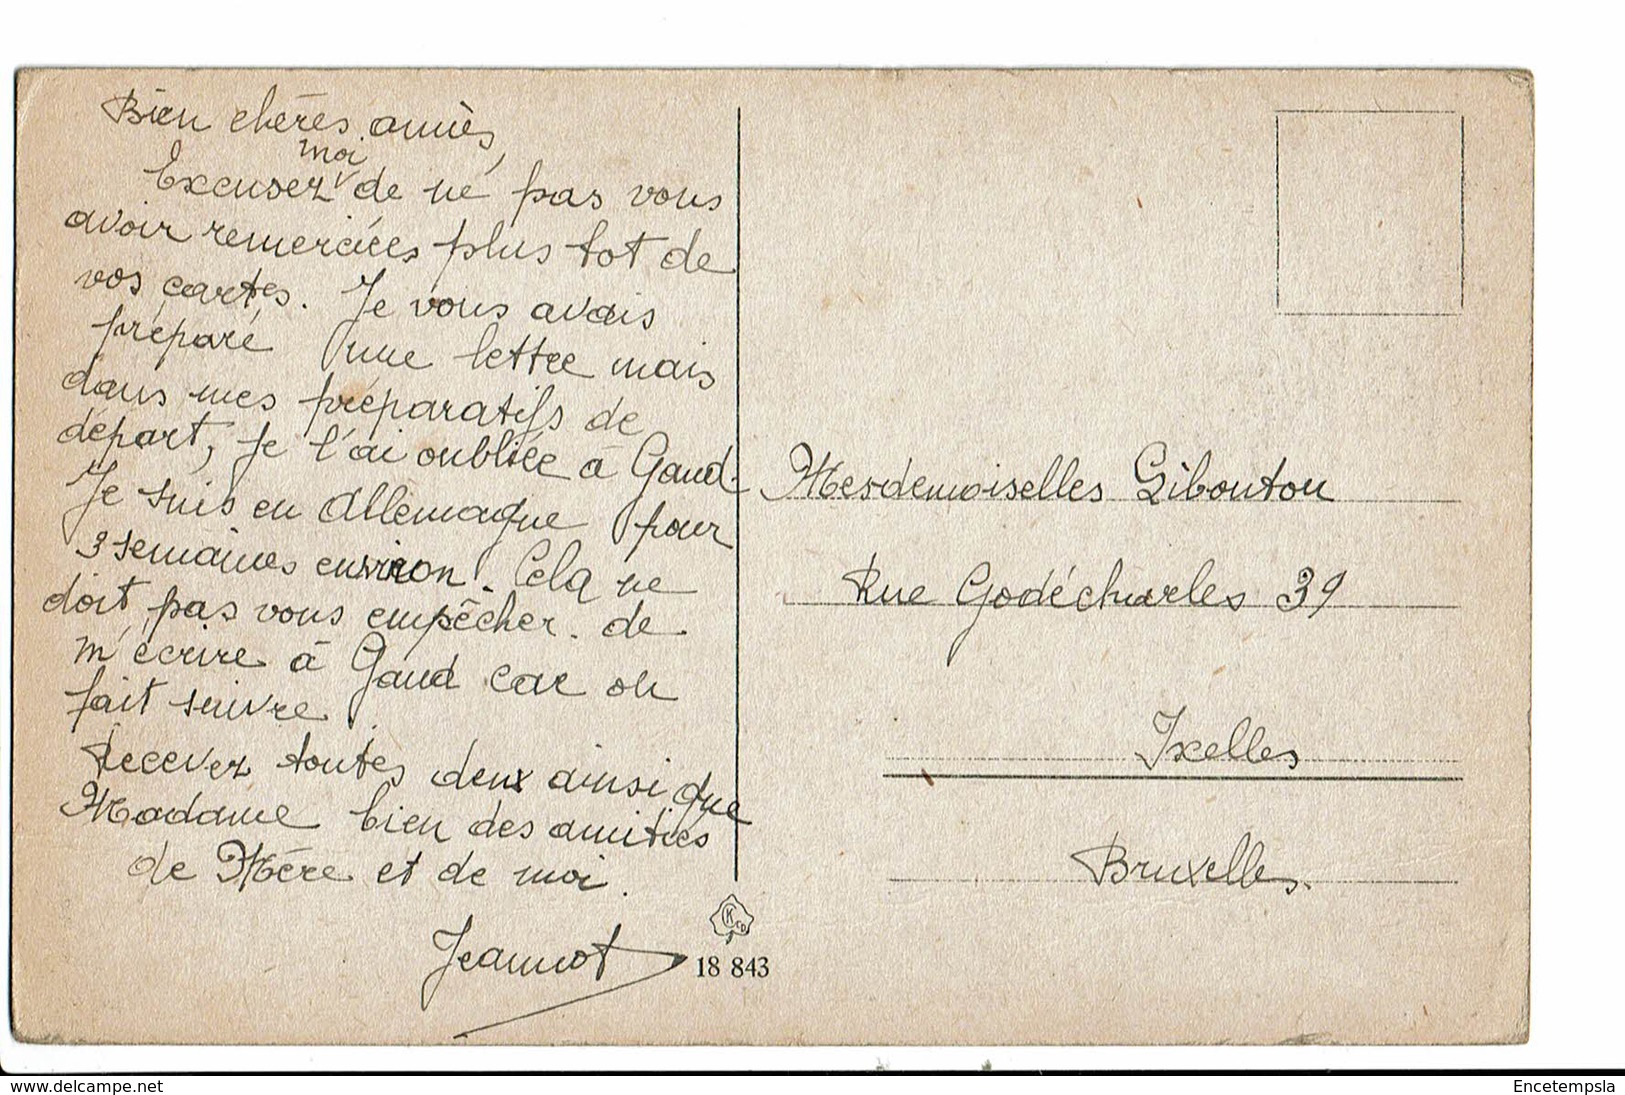 Bien chères amiès,
Excusez moi de ne pas vous
avoir remerciées plus tot de
vos cartes. Je vous avais
préparé une lettre mais
dans mes préparatifs de
départ, je l'ai oubliée à Gand.
Je suis en Allemagne pour
3 semaines environ. Cela ne
doit pas vous empêcher de
m'écrire à Gand car on
fait suivre.
Recevez toutes deux ainsi que
Madame bien des amitiés
de Mère et de moi.
Jeannot
18 843
Mesdemoiselles Libouton
Rue Godécharles 39
Ixelles
Bruxelles.
www.delcampe.net
Encetempsla